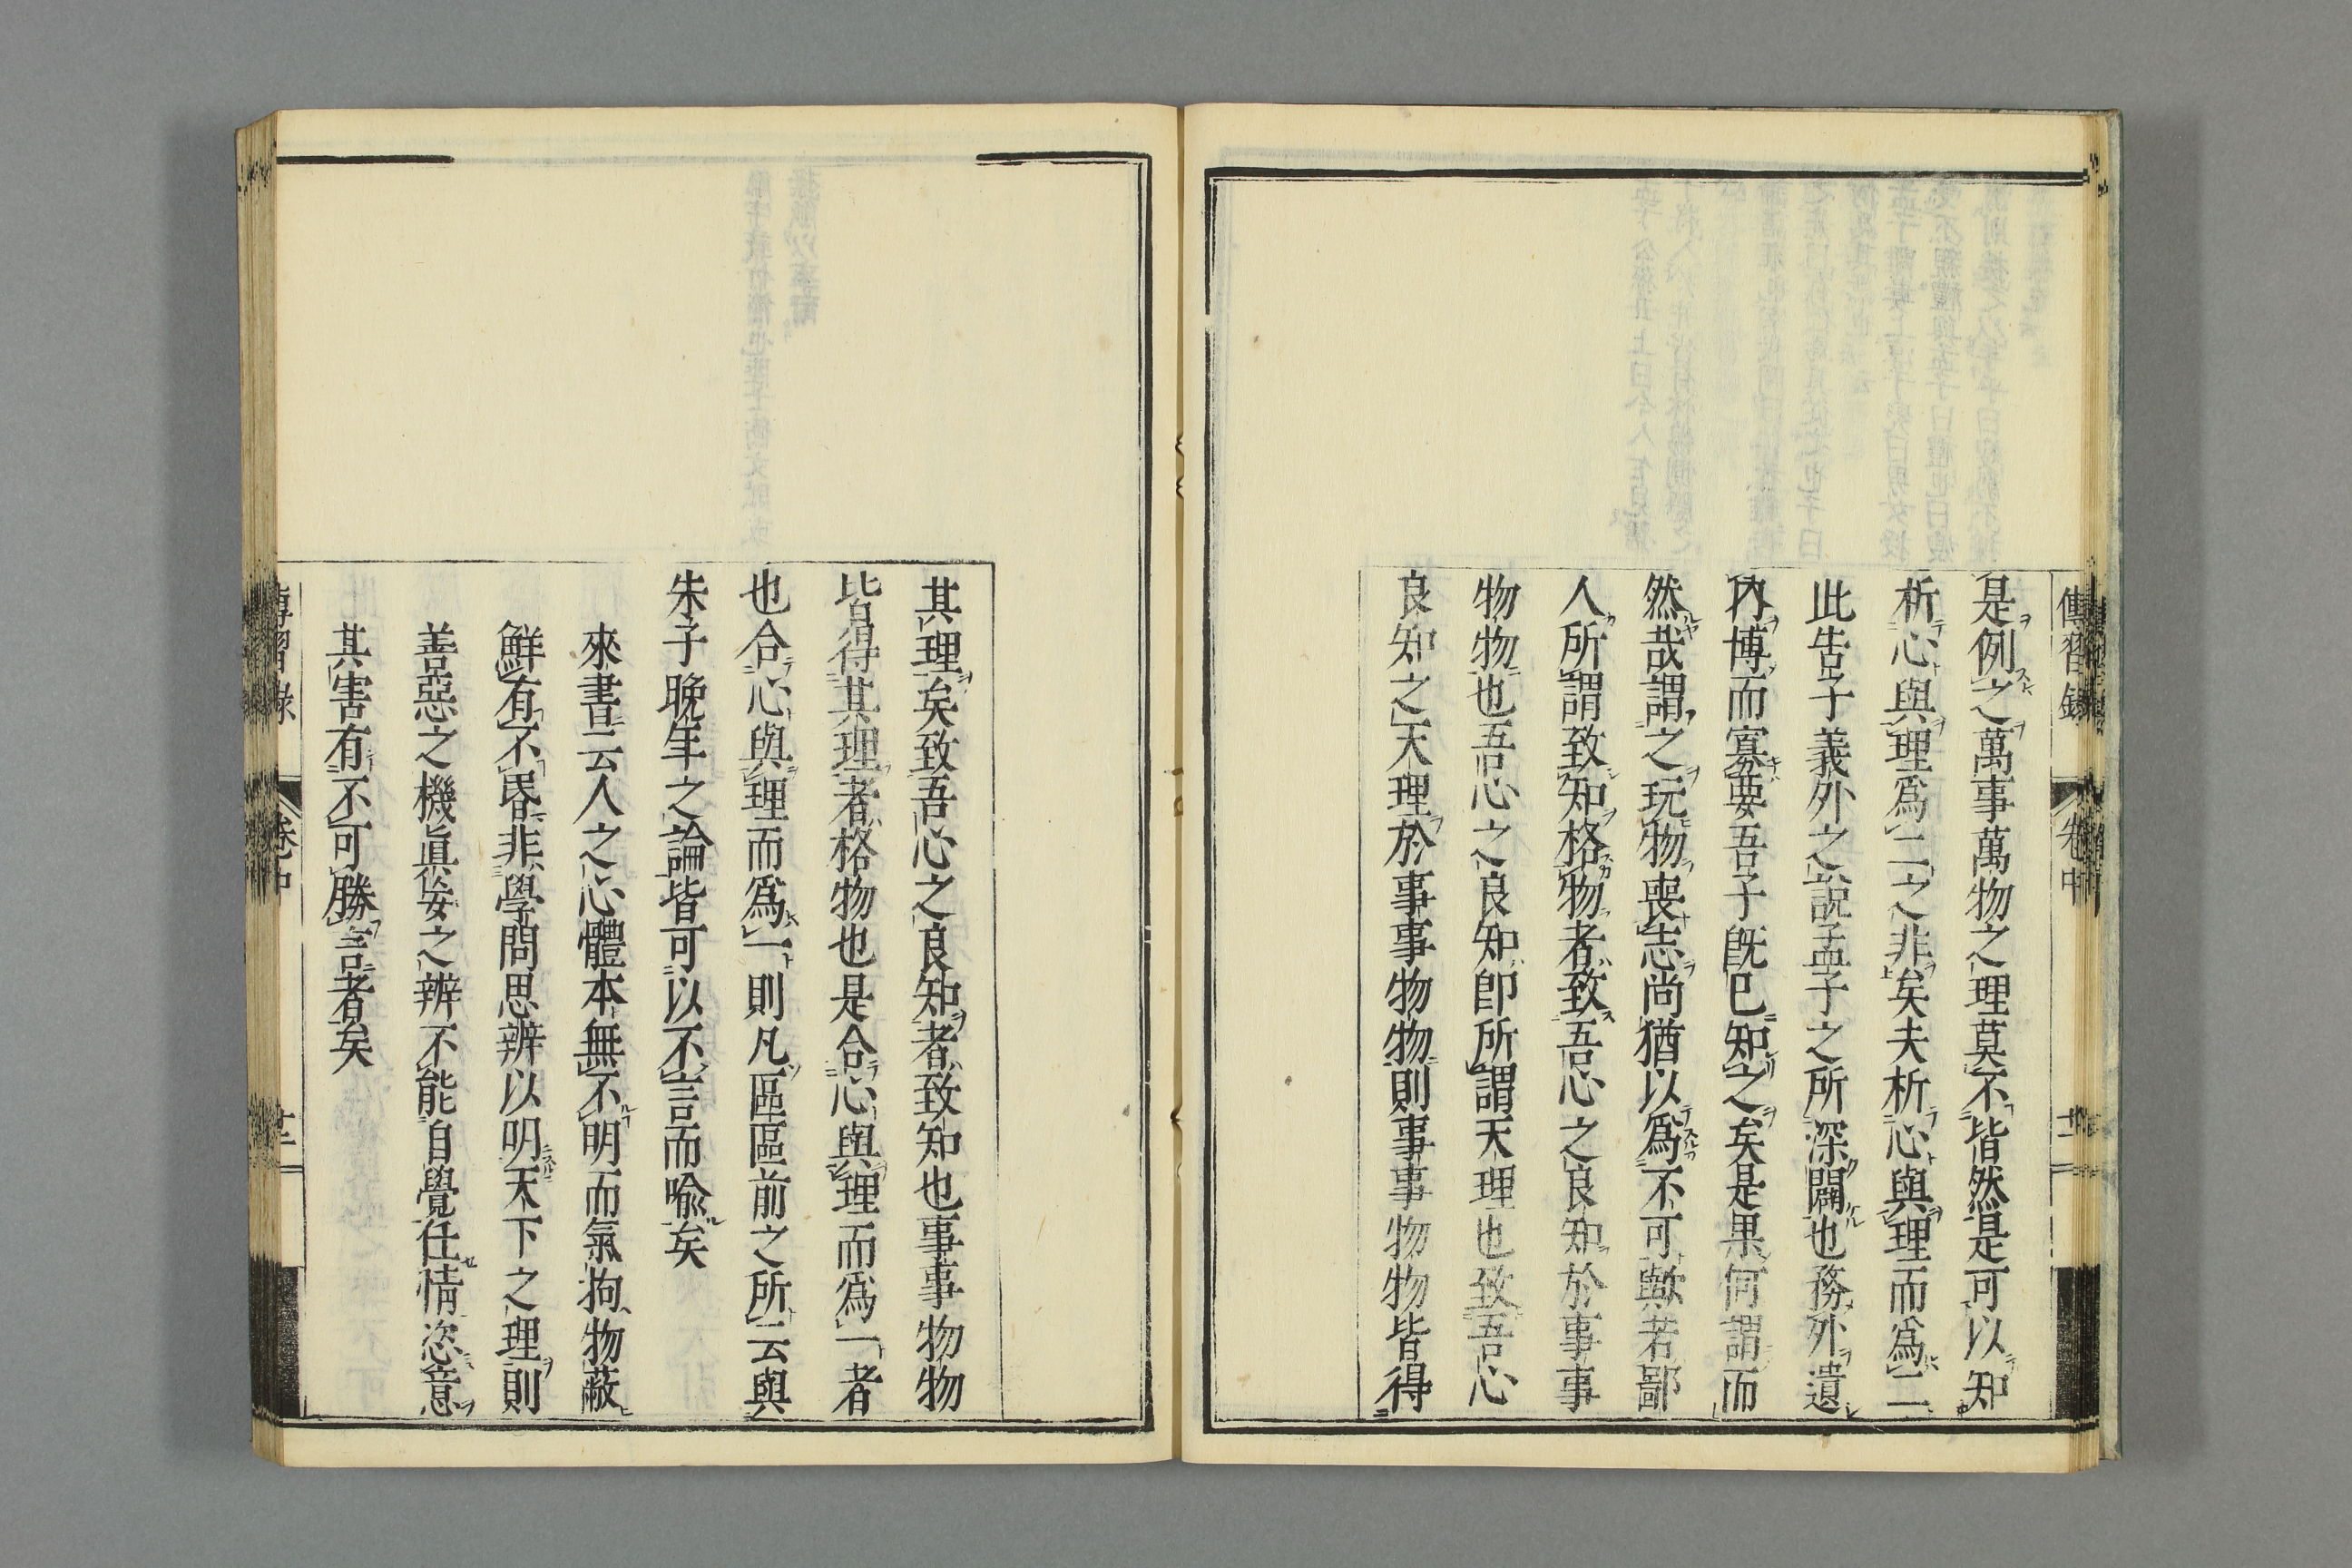 傳習錄 卷中 十二
是例之萬事萬物之理莫不皆然是可以知
析心與理爲二之非矣夫析心與理而爲二
此告子義外之說孟子之所深闢也務外遺
內博而寡要吾子旣已知之矣是果何謂而
然哉謂之玩物喪志尚猶以爲不可歟若鄙
人所謂致知格物者致吾心之良知於事事
物物也吾心之良知卽所謂天理也致吾心
良知之天理於事事物物則事事物物皆得
其理矣致吾心之良知者致知也事事物物
皆得其理者格物也是合心與理而爲一者
也合心與理而爲一則凡區區前之所云與
朱子晚年之論皆可以不言而喩矣
來書云人之心體本無不明而氣拘物蔽
鮮有不昬非學問思辨以明天下之理則
善惡之機眞妄之辨不能自覺任情恣意
其害有不可勝言者矣
傳習錄 卷中